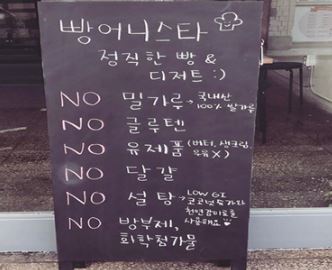 빵어니스타
정직한 빵 &
디저트 :)
NO 밀가루 → 국내산
100% 쌀가루
NO 글루텐
NO 유제품 (버터, 생크림,
우유 X)
NO 달걀
NO 설탕 → LOW GI
코코넛슈가와
천연감미료를
사용해요
NO 방부제,
화학첨가물